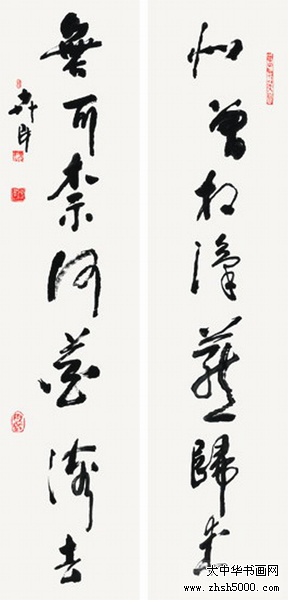 似曾相識燕歸来
無可奈何花落去
大中华书画网
www.zhsh5000.com